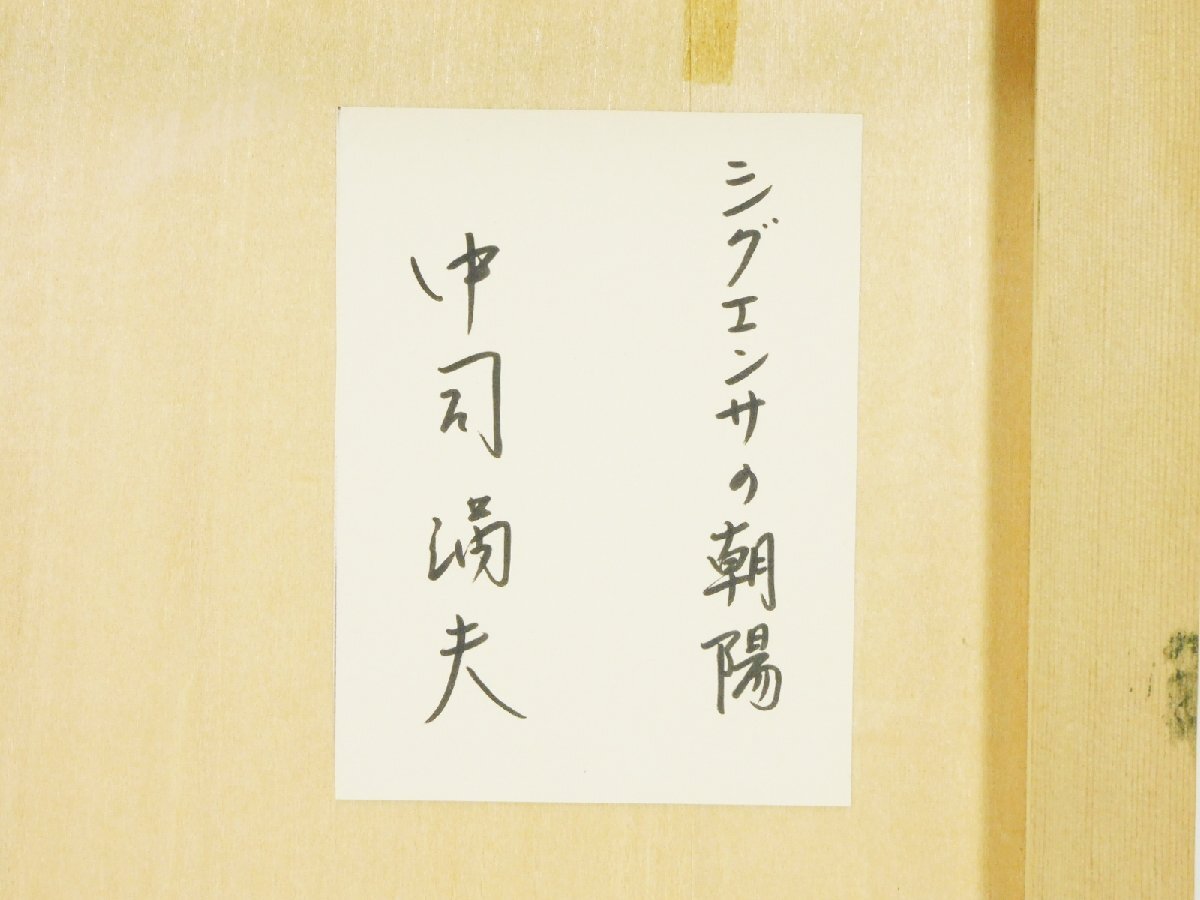 シグエンサの朝陽
中司満夫